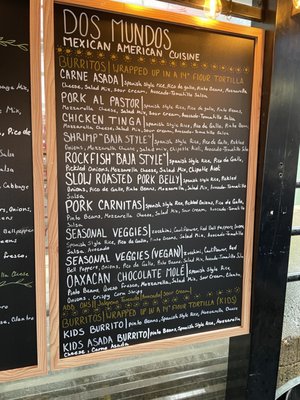 DOS MUNDOS
MEXICAN AMERICAN CUISINE
BURRITOS | WRAPPED UP IN A 14" FLOUR TORTILLA
CARNE ASADA | Spanish Style Rice, Pico de gallo, Pinto Beans, Mozzarella
Cheese, Salad Mix, Sour Cream, Avocado-Tomatillo Salsa.
PORK AL PASTOR | Spanish Style Rice, Pico de gallo, Pinto Beans,
Mozzarella Cheese, Salad Mix, Sour Cream, Avocado-Tomatillo Salsa
CHICKEN TINGA | Spanish Style Rice, Pico de Gallo, Pinto Beans,
Mozzarella Cheese, Salad Mix, Sour Cream, Avocado Tomatillo Salsa
SHRIMP "BAJA STYLE" | Spanish Style Rice, Pico de Gallo, Pickled
Onions, Mozzarella Cheese, Salad Mix, Chipotle Aioli, Avocado Tomatillo Salsa
ROCKFISH "BAJA STYLE" | Spanish Style Rice, Pico de Gallo,
Pickled Onions, Mozzarella Cheese, Salad Mix, Chipotle Aioli
SLOW ROASTED PORK BELLY | Spanish Style Rice, Pickled
Onions, Pico de Gallo, Pinto Beans, Mozzarella, Salad Mix, Avocado Tomatillo
Salsa
PORK CARNITAS | Spanish Style Rice, Pickled Onions, Pico de Gallo,
Pinto Beans, Mozzarella Cheese, Salad Mix, Sour Cream, Avocado Tomatillo
Salsa
SEASONAL VEGGIES | Zucchini, Cauliflower, Red Bell Peppers, Onions,
Spanish Style Rice, Pico de Gallo, Pinto Beans, Mozzarella, Salad Mix, Avocado Tomatillo
Salsa, Avocado
SEASONAL VEGGIES (VEGAN) | Zucchini, Cauliflower, Red
Bell Peppers, Onions, Pico de Gallo, Pinto Beans, Salad Mix, Avocado Tomatillo Salsa
OAXACAN CHOCOLATE MOLE | Spanish Style Rice
Pinto Beans, Queso Fresco, Mozzarella, Salad Mix, Sour Cream,
Onions, Crispy Corn Strips
ADD ONS |
BURRITOS | WRAPPED UP IN A 14" FLOUR TORTILLA (KIDS)
KIDS BURRITO | Pinto Beans, Spanish Style Rice, Cheese
KIDS ASADA BURRITO | Pinto Beans, Spanish Style Rice,
Cheese, Carne Asada